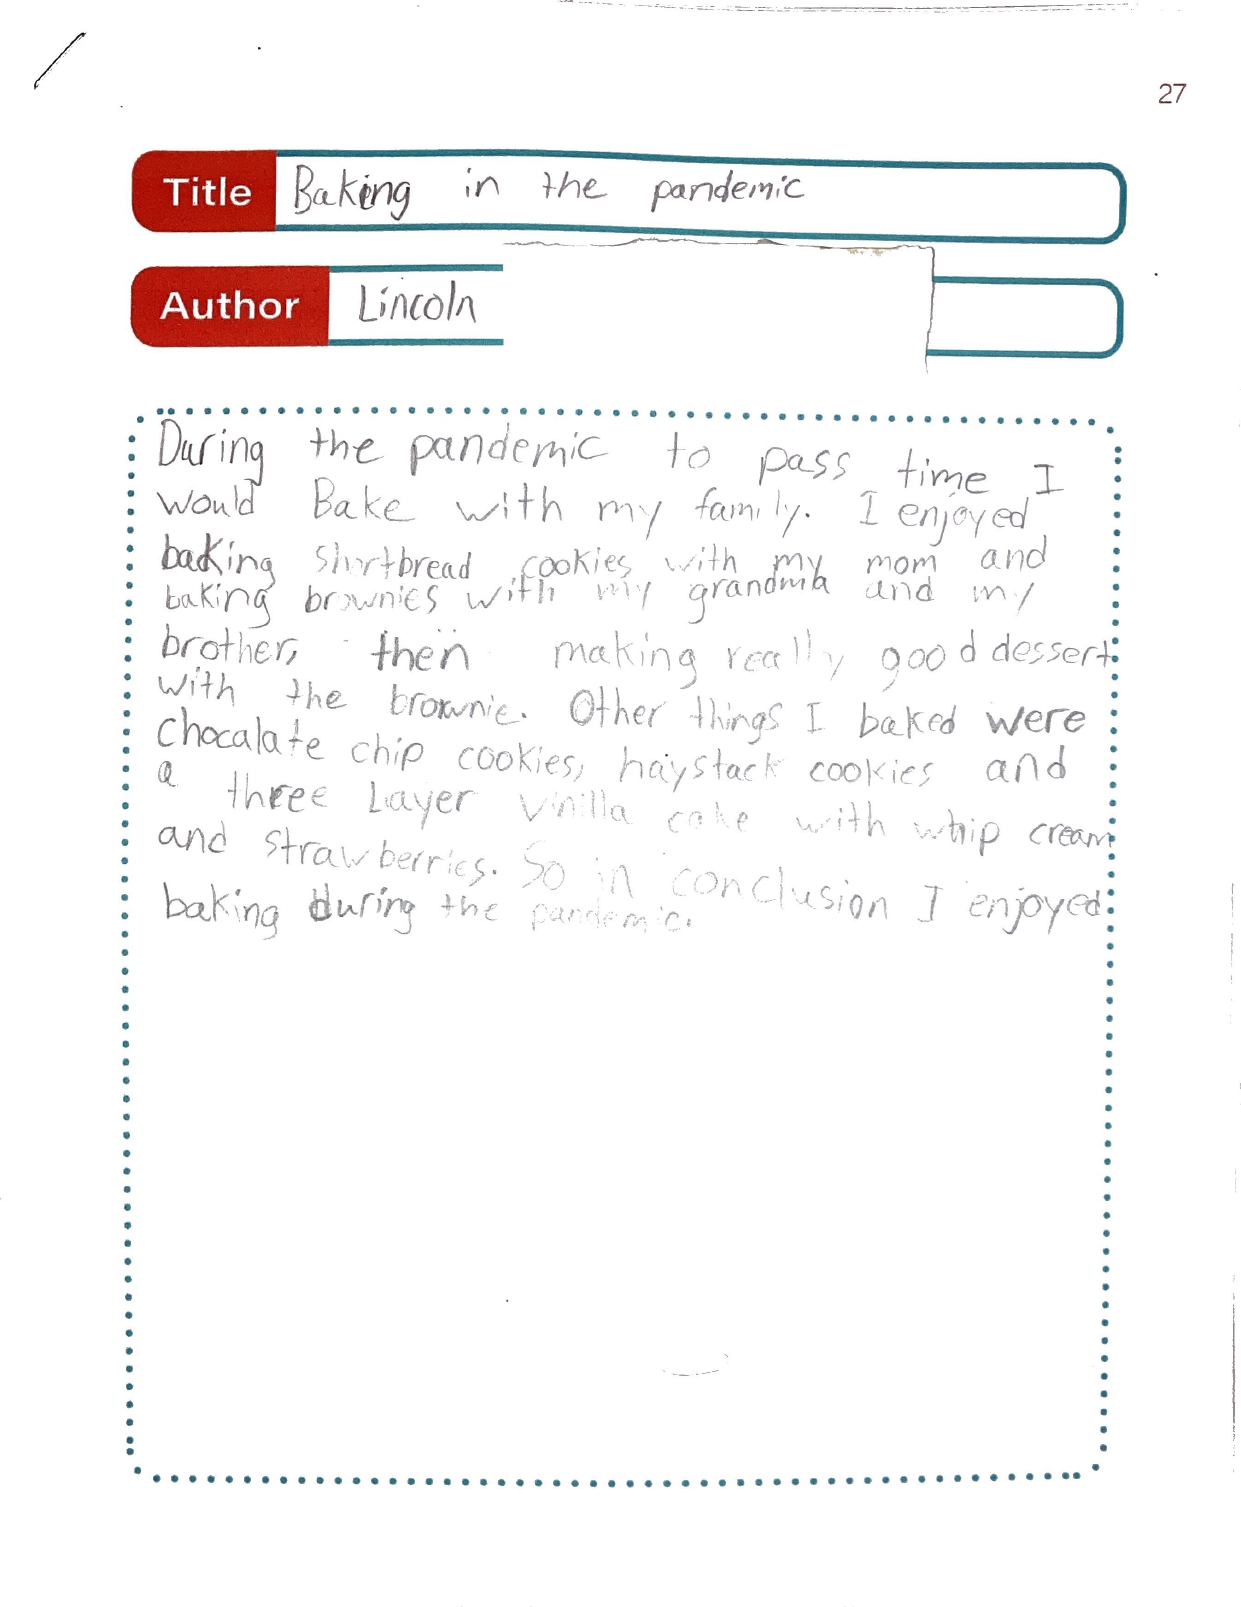 27
Title Baking in the pandemic
Author Lincoln
During the pandemic to pass time I
would Bake with my family. I enjoyed
baking shortbread cookies with my mom and
baking brownies with my grandma and my
brother, then making really good dessert
with the brownie. Other things I baked were
chocalate chip cookies, haystack cookies and
a three Layer vinilla cake with whip cream
and strawberries. So in conclusion I enjoyed
baking during the pandemic.